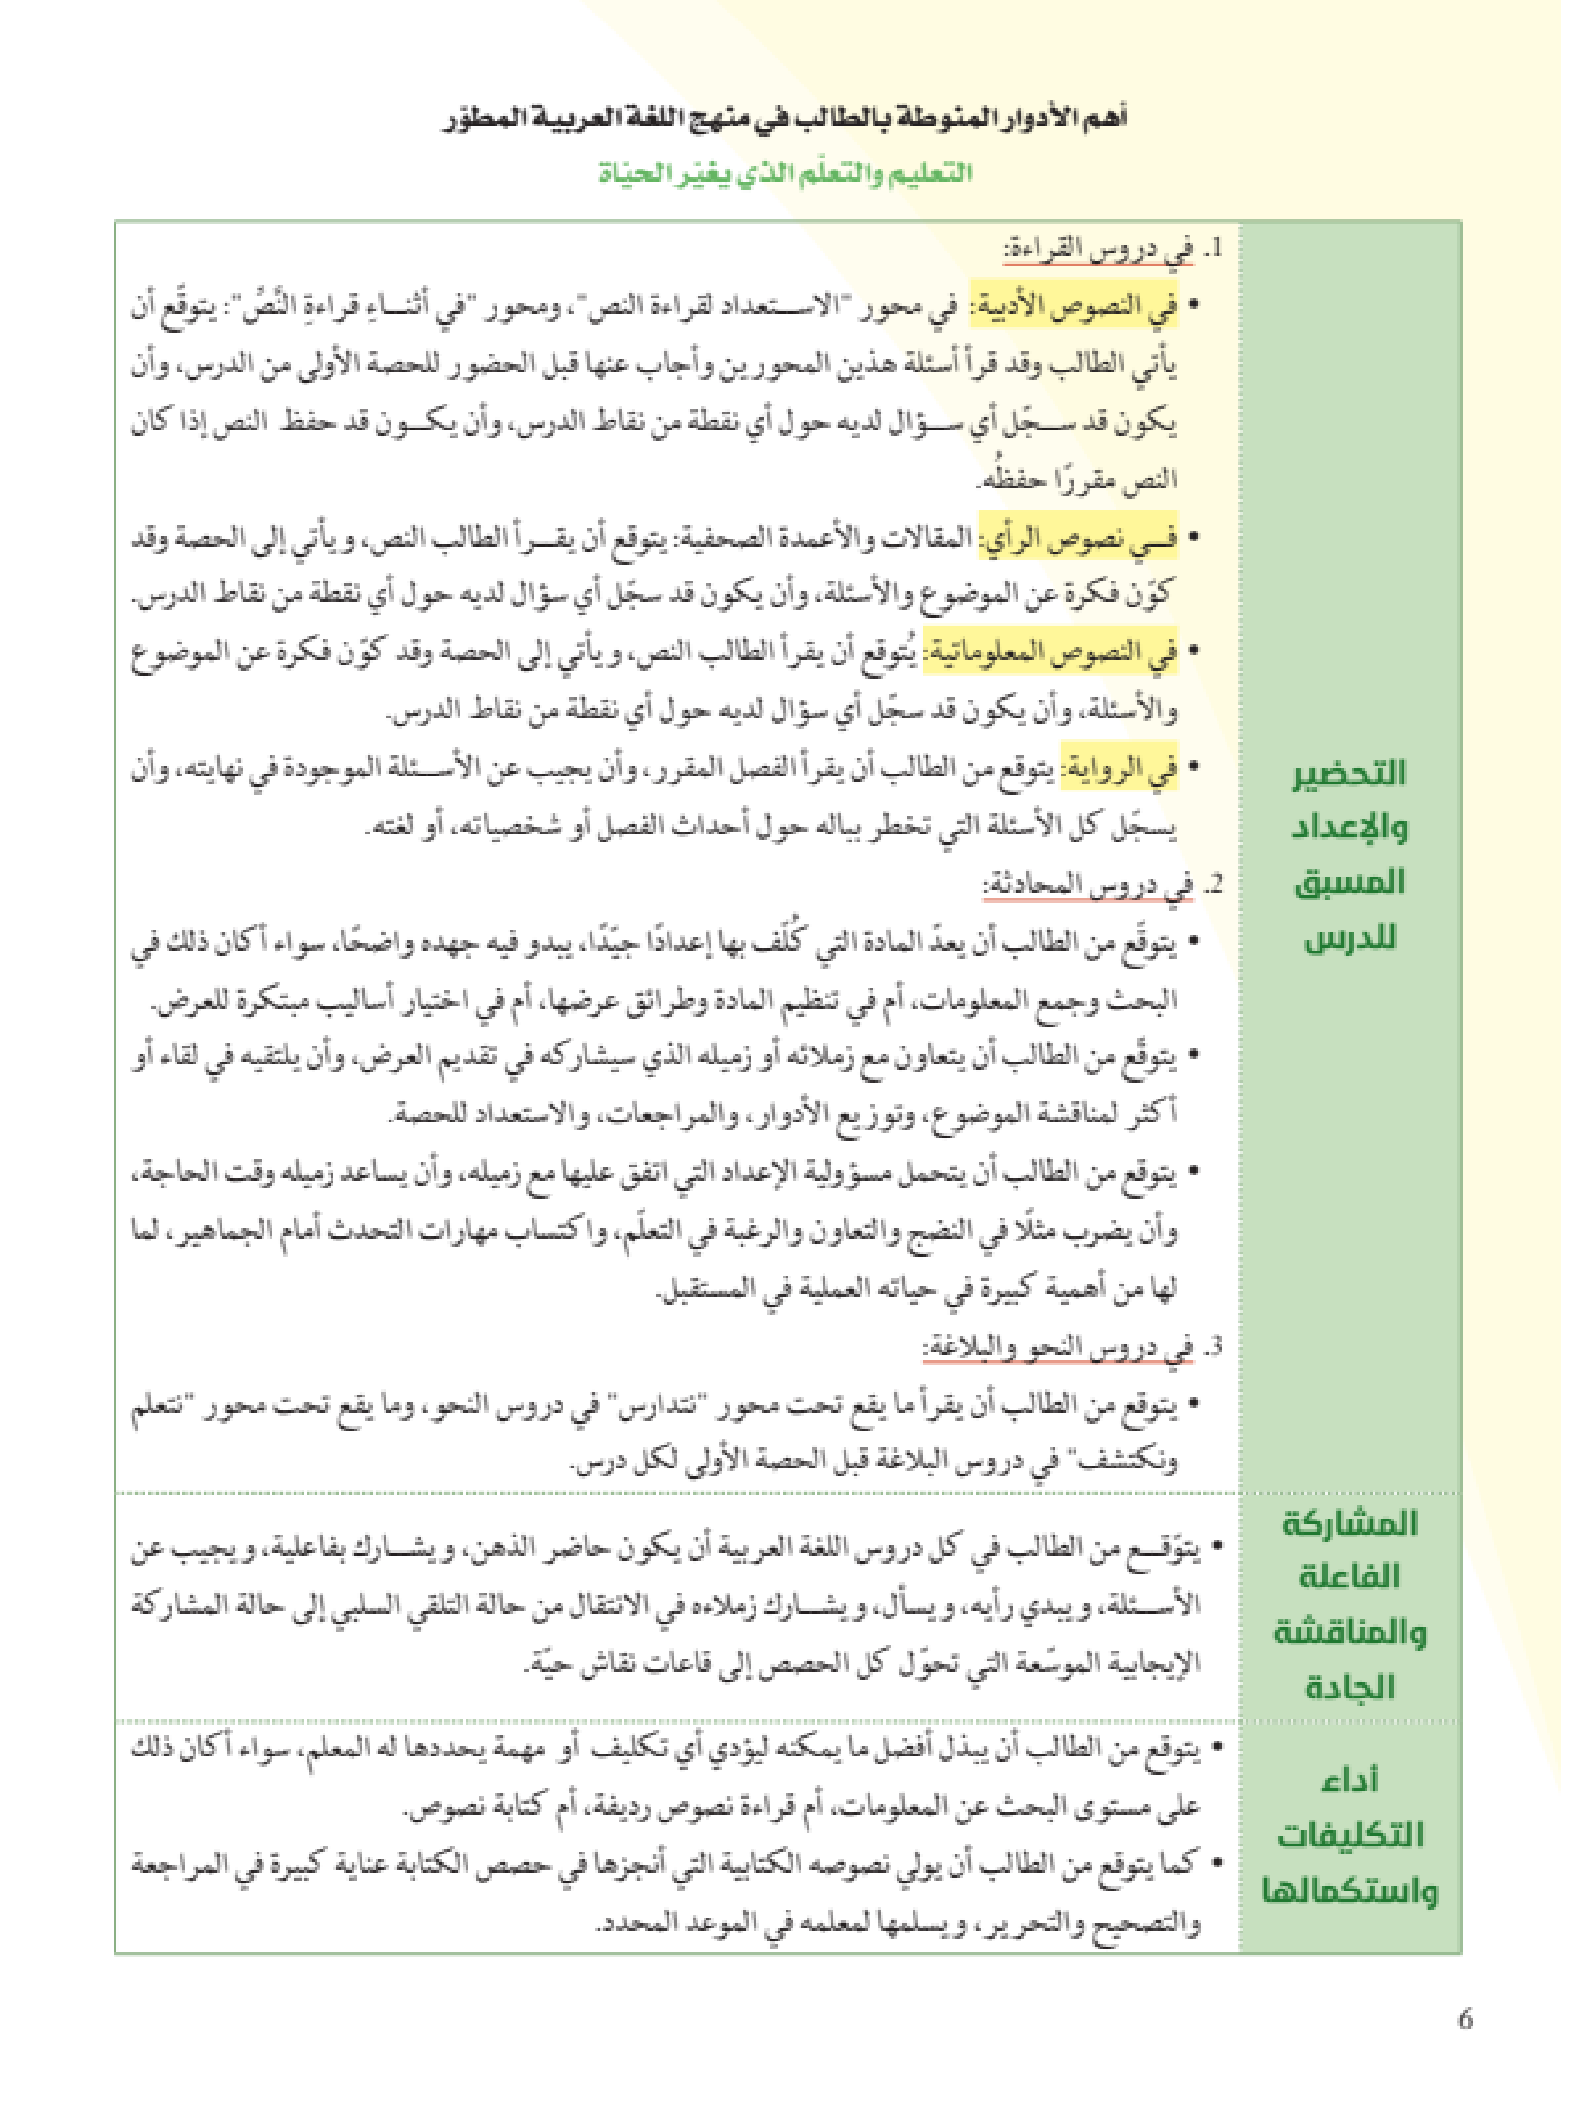 أهم الأدوار المنوطة بالطالب في منهج اللغة العربية المطوّر
التعليم والتعلّم الذي يغيّر الحيَاة
التحضير
والإعداد
المسبق
للدرس
1. في دروس القراءة:
• في النصوص الأدبية: في محور "الاســـتعداد لقراءة النص"، ومحور "في أثنـــاءِ قراءةِ النَّصِّ": يتوقَّع أن
يأتي الطالب وقد قرأ أسئلة هذين المحورين وأجاب عنها قبل الحضور للحصة الأولى من الدرس، وأن
يكون قد ســـجّل أي ســـؤال لديه حول أي نقطة من نقاط الدرس، وأن يكـــون قد حفظ النص إذا كان
النص مقررًا حفظُه.
• فـــي نصوص الرأي: المقالات والأعمدة الصحفية: يتوقع أن يقـــرأ الطالب النص، ويأتي إلى الحصة وقد
كوّن فكرة عن الموضوع والأسئلة، وأن يكون قد سجّل أي سؤال لديه حول أي نقطة من نقاط الدرس.
• في النصوص المعلوماتية: يُتوقع أن يقرأ الطالب النص، ويأتي إلى الحصة وقد كوّن فكرة عن الموضوع
والأسئلة، وأن يكون قد سجّل أي سؤال لديه حول أي نقطة من نقاط الدرس.
• في الرواية: يتوقع من الطالب أن يقرأ الفصل المقرر، وأن يجيب عن الأســـئلة الموجودة في نهايته، وأن
يسجّل كل الأسئلة التي تخطر بباله حول أحداث الفصل أو شخصياته، أو لغته.
2. في دروس المحادثة:
• يتوقَّع من الطالب أن يعدّ المادة التي كُلّف بها إعدادًا جيّدًا، يبدو فيه جهده واضحًا، سواء أكان ذلك في
البحث وجمع المعلومات، أم في تنظيم المادة وطرائق عرضها، أم في اختيار أساليب مبتكرة للعرض.
• يتوقّع من الطالب أن يتعاون مع زملائه أو زميله الذي سيشاركه في تقديم العرض، وأن يلتقيه في لقاء أو
أكثر لمناقشة الموضوع، وتوزيع الأدوار، والمراجعات، والاستعداد للحصة.
• يتوقع من الطالب أن يتحمل مسؤولية الإعداد التي اتفق عليها مع زميله، وأن يساعد زميله وقت الحاجة،
وأن يضرب مثلًا في النضج والتعاون والرغبة في التعلّم، واكتساب مهارات التحدث أمام الجماهير، لما
لها من أهمية كبيرة في حياته العملية في المستقبل.
3. في دروس النحو والبلاغة:
• يتوقع من الطالب أن يقرأ ما يقع تحت محور "نتدارس" في دروس النحو، وما يقع تحت محور "نتعلم
ونكتشف" في دروس البلاغة قبل الحصة الأولى لكل درس.
المشاركة
الفاعلة
والمناقشة
الجادة
• يتوّقـــع من الطالب في كل دروس اللغة العربية أن يكون حاضر الذهن، ويشـــارك بفاعلية، ويجيب عن
الأســـئلة، ويبدي رأيه، ويسأل، ويشـــارك زملاءه في الانتقال من حالة التلقي السلبي إلى حالة المشاركة
الإيجابية الموسّعة التي تحوّل كل الحصص إلى قاعات نقاش حيّة.
أداء
التكليفات
واستكمالها
• يتوقع من الطالب أن يبذل أفضل ما يمكنه ليؤدي أي تكليف أو مهمة يحددها له المعلم، سواء أكان ذلك
على مستوى البحث عن المعلومات، أم قراءة نصوص رديفة، أم كتابة نصوص.
• كما يتوقع من الطالب أن يولي نصوصه الكتابية التي أنجزها في حصص الكتابة عناية كبيرة في المراجعة
والتصحيح والتحرير، ويسلمها لمعلمه في الموعد المحدد.
6